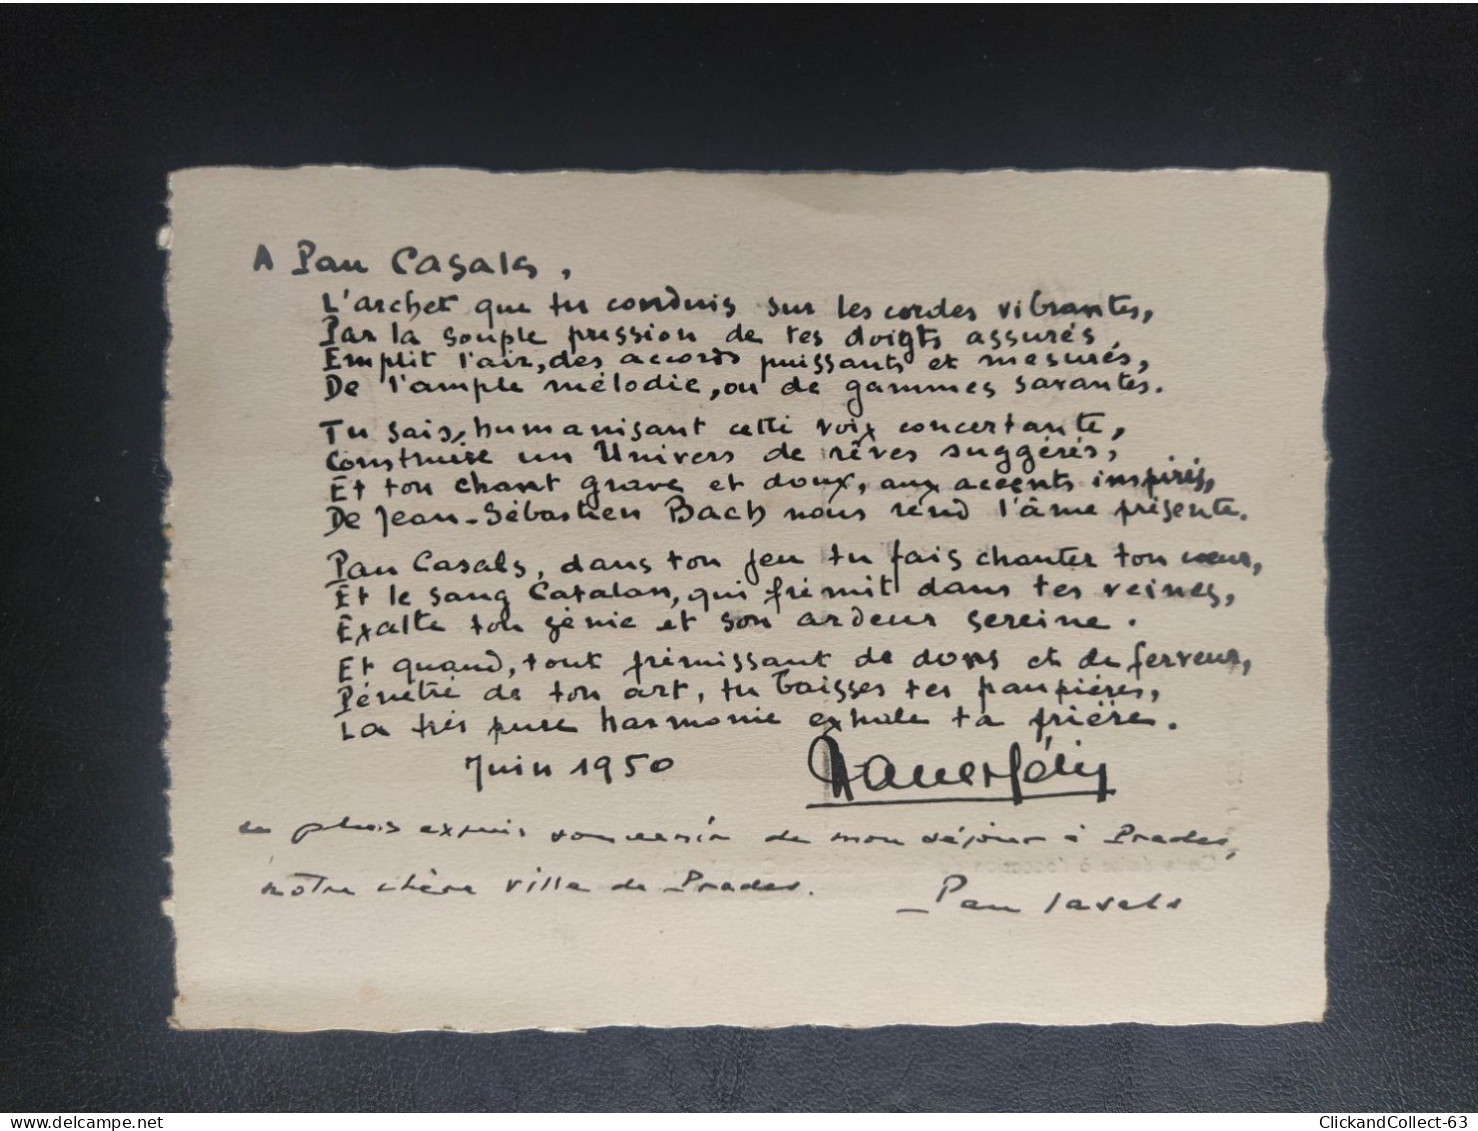 A Pau Casals,
L'archet que tu conduis sur les cordes vibrantes,
Par la souple pression de tes doigts assurés,
Emplit l'air, des accords puissants et mesurés,
De l'ample mélodie, ou de gammes savantes.
Tu sais, humanisant cette voix concertante,
Construire un Univers de rêves suggérés,
Et ton chant grave et doux, aux accents inspirés,
De Jean-Sébastien Bach nous rend l'âme présente.
Pau Casals, dans ton jeu tu fais chanter ton cœur,
Et le sang Catalan, qui frémit dans tes veines,
Exalte ton génie et son ardeur sereine.
Et quand, tout frémissant de dons et de ferveur,
Pénétré de ton art, tu baisses tes paupières,
La très pure harmonie exhale ta prière.
Juin 1950
plus exquis souvenir de mon séjour à Prades,
nôtre chère ville de Prades.
- Pau Casals
delcampe.net
ClickandCollect-63